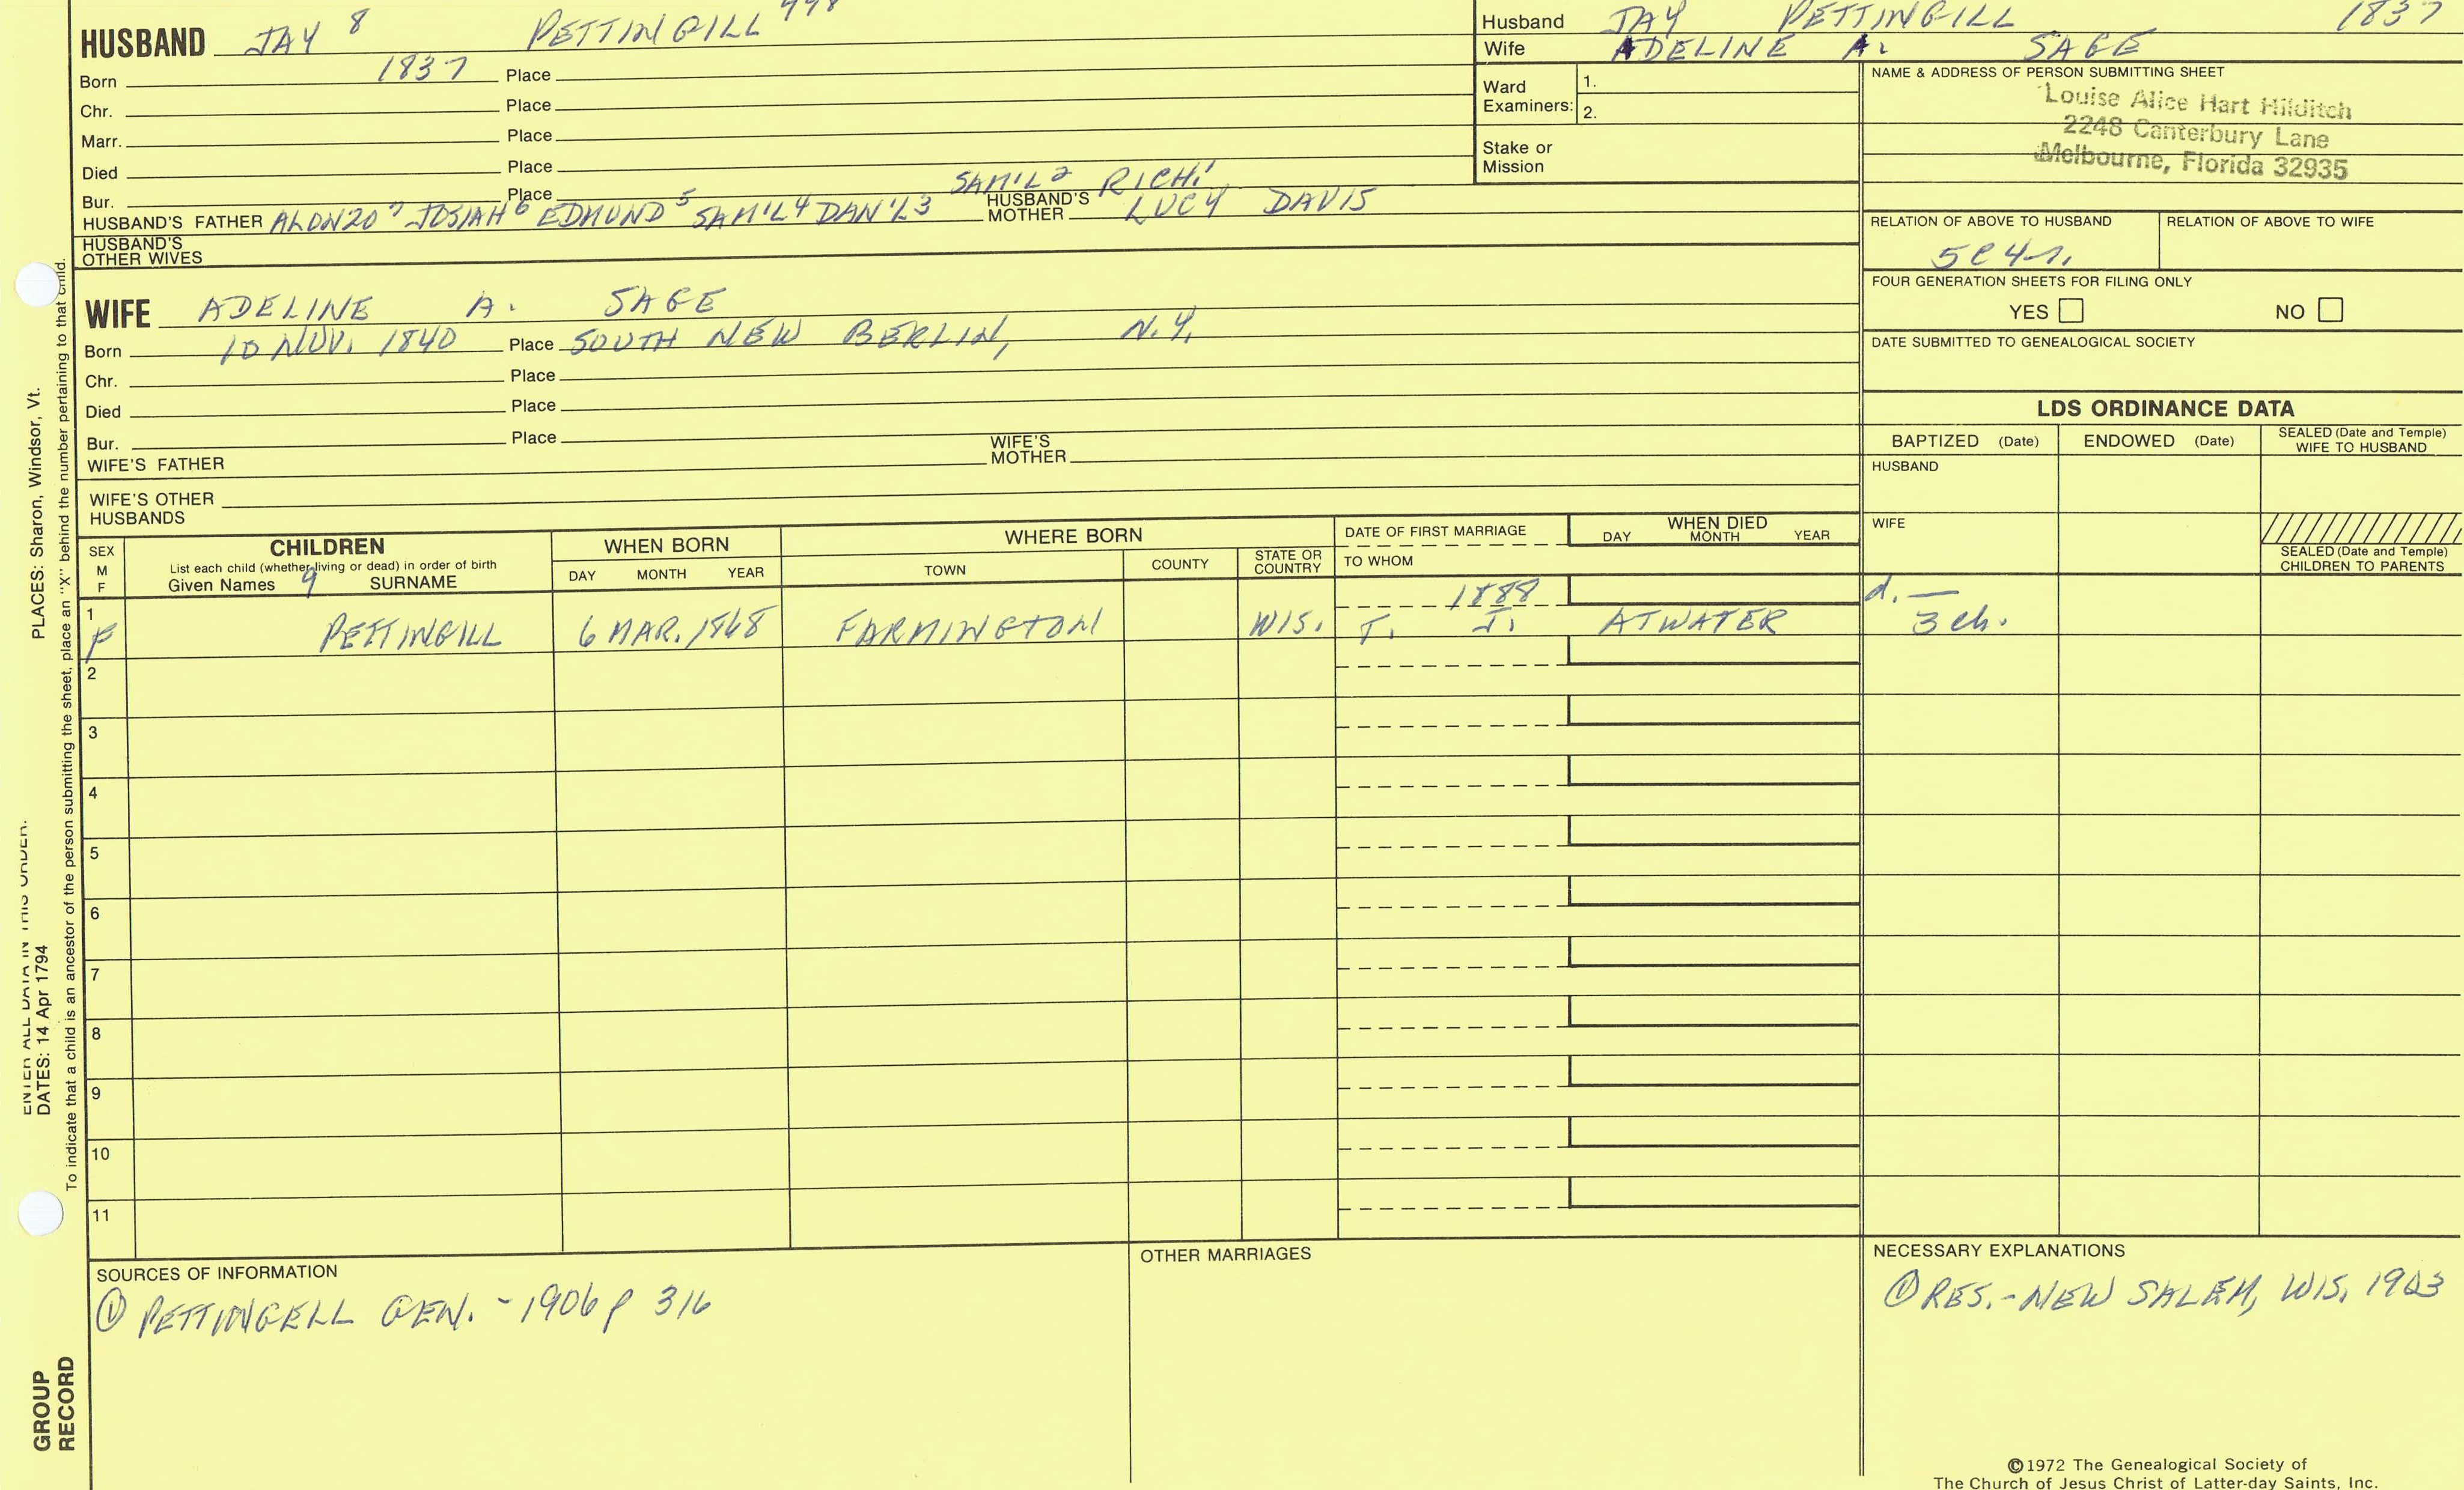 HUSBAND JAY 8 PETTINGILL
Born 1837 Place
Chr. Place
Marr. Place
Died Place
Bur. Place
SAM'L2 RICH.1
HUSBAND'S FATHER ALONZO7 JOSIAH6 EDMUND5 SAM'L4 DAN'L3 HUSBAND'S MOTHER LUCY DAVIS
HUSBAND'S
OTHER WIVES
WIFE ADELINE A. SAGE
Born 10 NOV. 1840 Place SOUTH NEW BERLIN, N.Y.
Chr. Place
Died Place
Bur. Place
WIFE'S FATHER WIFE'S MOTHER
WIFE'S OTHER
HUSBANDS
Husband JAY PETTINGILL 1837
Wife ADELINE A. SAGE
Ward
Examiners:
1.
2.
Stake or
Mission
NAME & ADDRESS OF PERSON SUBMITTING SHEET
Louise Alice Hart Hilditch
2248 Canterbury Lane
Melbourne, Florida 32935
RELATION OF ABOVE TO HUSBAND
RELATION OF ABOVE TO WIFE
FOUR GENERATION SHEETS FOR FILING ONLY
YES NO
DATE SUBMITTED TO GENEALOGICAL SOCIETY
LDS ORDINANCE DATA
BAPTIZED (Date) ENDOWED (Date) SEALED (Date and Temple)
WIFE TO HUSBAND
HUSBAND
WIFE
SEALED (Date and Temple)
CHILDREN TO PARENTS
SEX
M
F
CHILDREN
List each child (whether living or dead) in order of birth
Given Names 9 SURNAME
WHEN BORN
DAY MONTH YEAR
WHERE BORN
TOWN COUNTY STATE OR COUNTRY
DATE OF FIRST MARRIAGE
TO WHOM
WHEN DIED
DAY MONTH YEAR
1 1888 d. —
F PETTINGILL 6 MAR. 1868 FARMINGTON WIS. T. J. ATWATER 3 ch.
2
3
4
5
6
7
8
9
10
11
SOURCES OF INFORMATION
① PETTINGELL GEN. - 1906 p 316
OTHER MARRIAGES
NECESSARY EXPLANATIONS
① RES. - NEW SALEM, WIS. 1903
©1972 The Genealogical Society of
The Church of Jesus Christ of Latter-day Saints, Inc.
PLACES: Sharon, Windsor, Vt.
ENTER ALL DATA IN THIS ORDER:
DATES: 14 Apr 1794
To indicate that a child is an ancestor of the person submitting the sheet, place an "X" behind the number pertaining to that child.
GROUP
RECORD